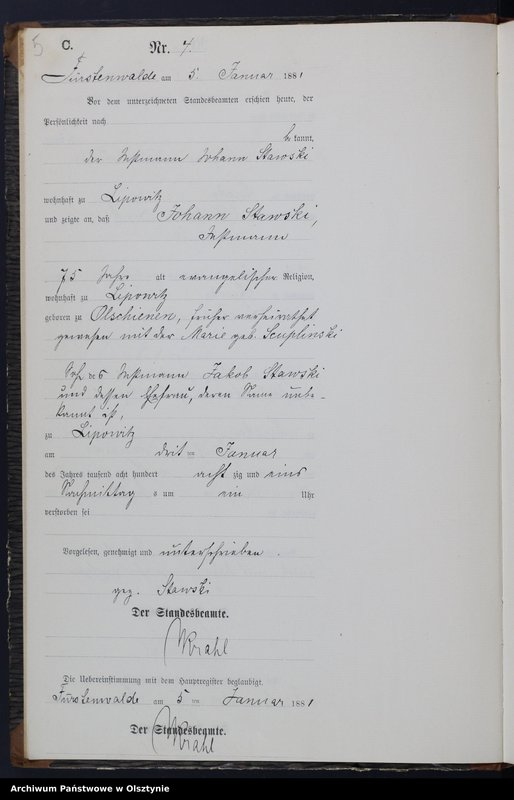 5
C.
Nr. 4.
Fürstenwalde am 5. Januar 1881
Vor dem unterzeichneten Standesbeamten erschien heute, der
Persönlichkeit nach
be kannt,
der Instmann Johann Stawski
wohnhaft zu Lipowitz
und zeigte an, daß Johann Stawski,
Instmann
75 Jahre alt evangelischer Religion,
wohnhaft zu Lipowitz
geboren zu Olschienen, früher verheirathet
gewesen mit der Marie geb. Scuplinski
Sohn des Instmann Jakob Stawski
und dessen Ehefrau, deren Name unbe-
kannt ist,
zu Lipowitz
am drit ten Januar
des Jahres tausend acht hundert acht zig und eins
Nachmittag s um ein Uhr
verstorben sei
Vorgelesen, genehmigt und unterschrieben.
gez. Stawski
Der Standesbeamte.
Krahl
Die Uebereinstimmung mit dem Hauptregister beglaubigt.
Fürstenwalde am 5 ten Januar 1881
Der Standesbeamte.
Krahl
Archiwum Państwowe w Olsztynie